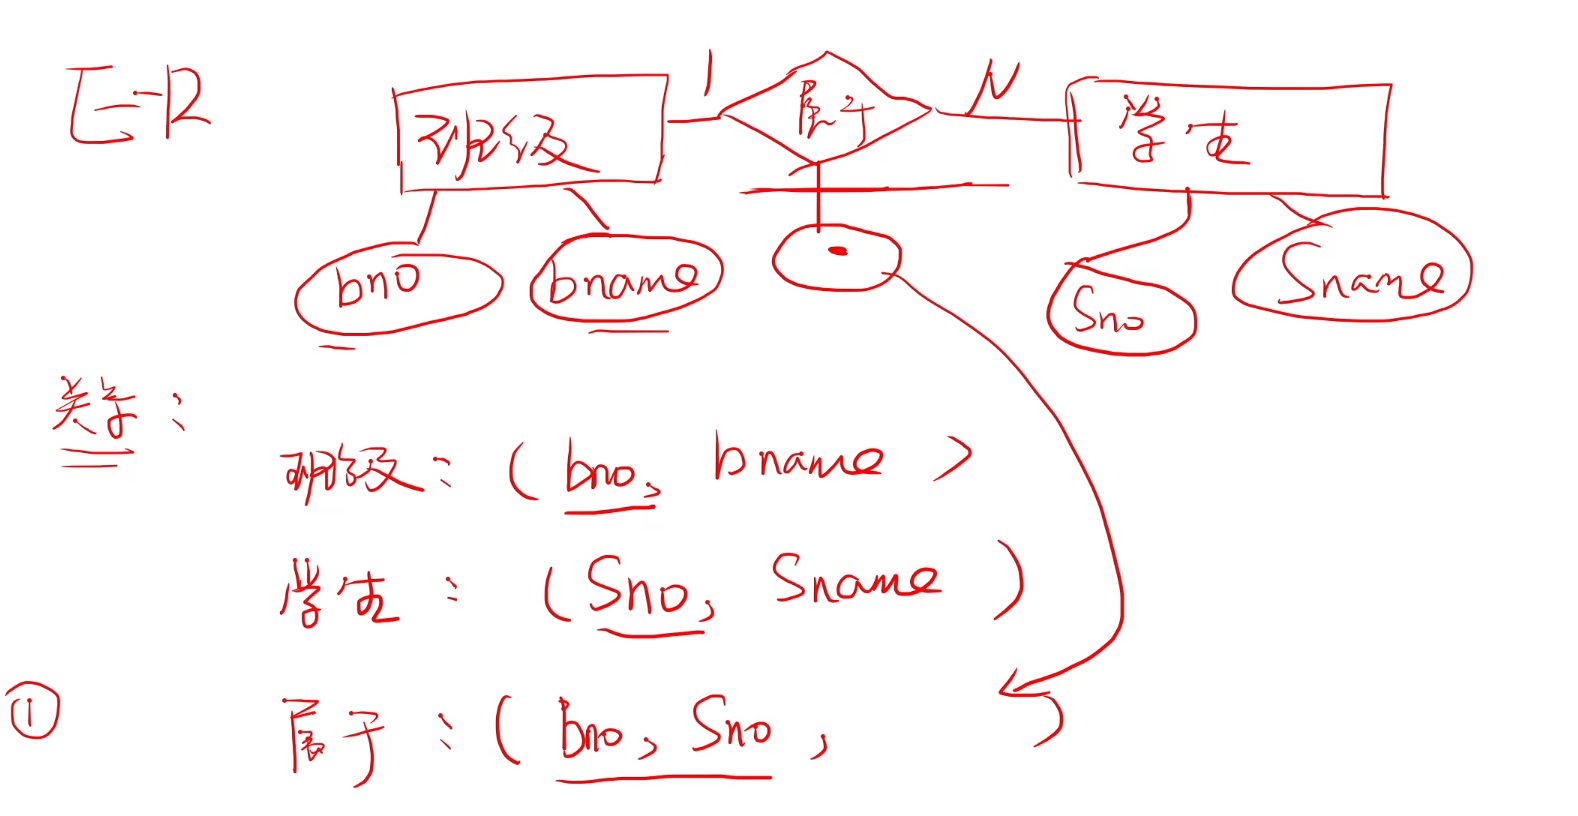 E-R
班级 1 属于 N 学生
bno bname Sno Sname
关系：
班级：(bno, bname)
学生：(Sno, Sname)
① 属于：(bno, Sno, )